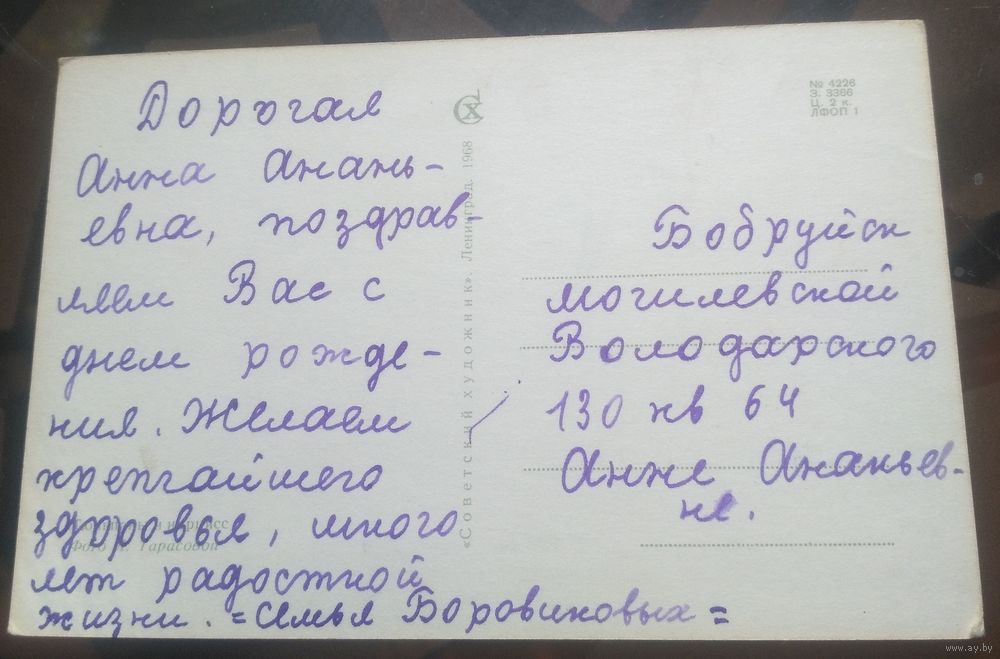 Дорогая
Анна Анань-
евна, поздрав-
ляем Вас с
днем рожде-
ния. Желаем
крепчайшего
здоровья, много
лет радостной
жизни. = Семья Боровиковых =
Фото Тарасовой
«Советский художник». Ленинград. 1968
№ 4226
З. 3366
Ц. 2 к.
ЛФОП 1
Бобруйск
могилевской
Володарского
130 кв 64
Анне Ананьев-
не.
www.ay.by